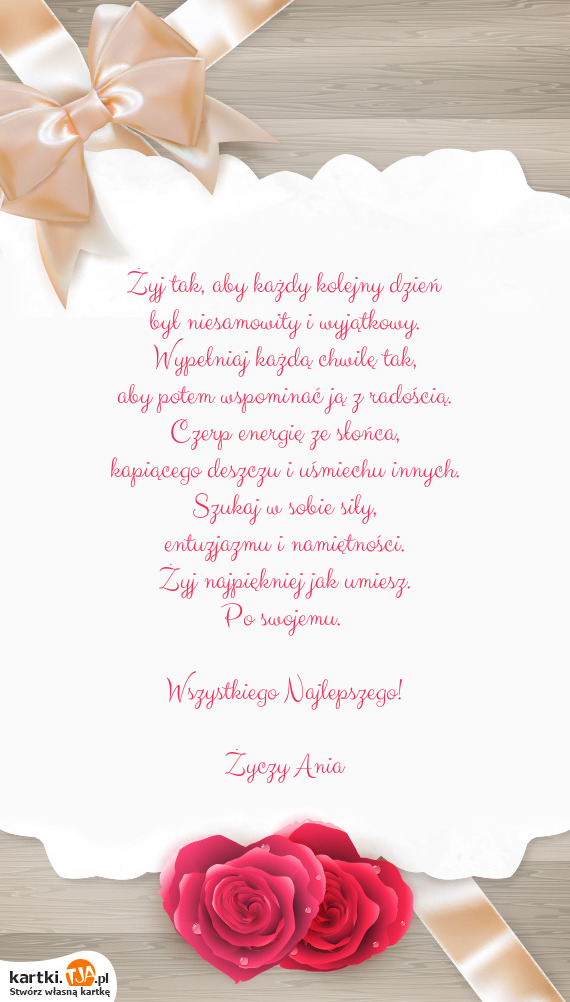 Żyj tak, aby każdy kolejny dzień
był niesamowity i wyjątkowy.
Wypełniaj każdą chwilę tak,
aby potem wspominać ją z radością.
Czerp energię ze słońca,
kapiącego deszczu i uśmiechu innych.
Szukaj w sobie siły,
entuzjazmu i namiętności.
Żyj najpiękniej jak umiesz.
Po swojemu.
Wszystkiego Najlepszego!
Życzy Ania
kartki.TJA.pl
Stwórz własną kartkę